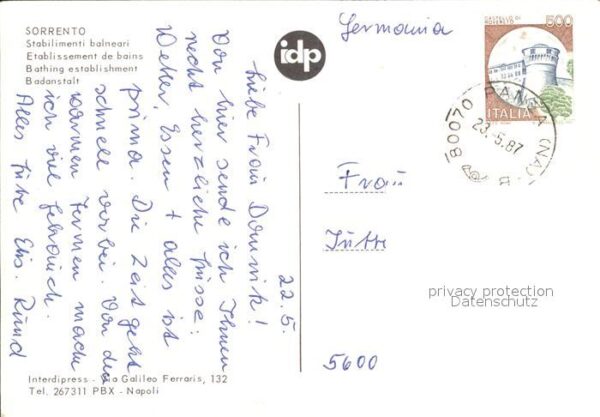 SORRENTO
Stabilimenti balneari
Etablissement de bains
Bathing establishment
Badanstalt
idp
22.5.
Liebe Frau
Von hier sende ich Ihnen
recht herzliche Grüsse.
Wetter, Essen + alles ist
prima. Die Zeit geht
schnell vorbei. Von den
warmen Termen mache
ich viel Gebrauch.
Alles Liebe Elis.
Germania
500
ITALIA
80070
(NA)
23.-5.87
Frau
Jutta
privacy protection
Datenschutz
5600
Interdipress - Via Galileo Ferraris, 132
Tel. 267311 PBX - Napoli